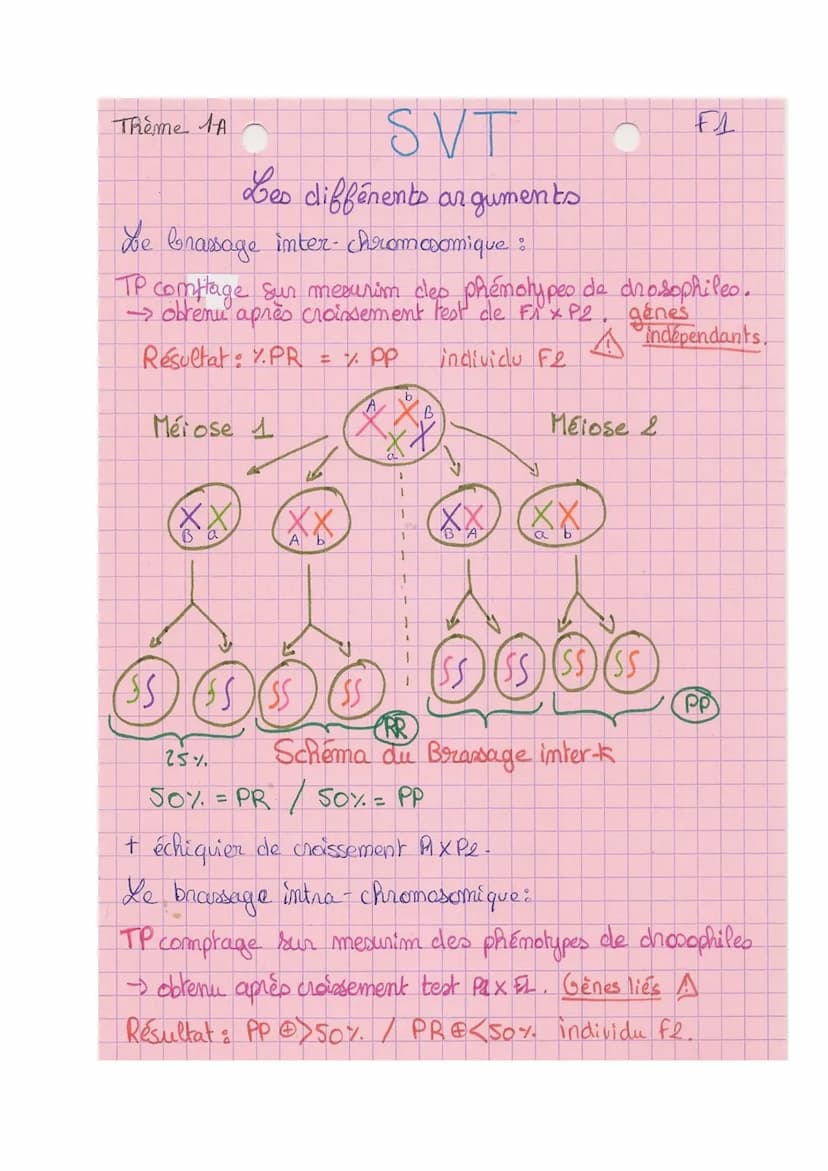 Thème 1A
SVT
F1
Les différents arguments
Le brassage inter-chromosomique :
TP comptage sur mesurim des phénotypes de drosophiles.
→ obtenu après croissement test de F1 x P2. gènes
⚠ indépendants.
Résultat : % PR = % PP individu F2
Méiose 1
A b B a
Méiose 2
B a
A b
B A
a b
25%
RR
PP
Schéma du Brassage inter-K
50% = PR / 50% = PP
+ échiquier de croissement A x P2.
Le brassage intra-chromosomique :
TP comptage sur mesurim des phénotypes de drosophiles
→ obtenu après croissement test P2 x F1. Gènes liés ⚠
Résultat : PP ⊕ > 50% / PR ⊕ < 50% individu F2.